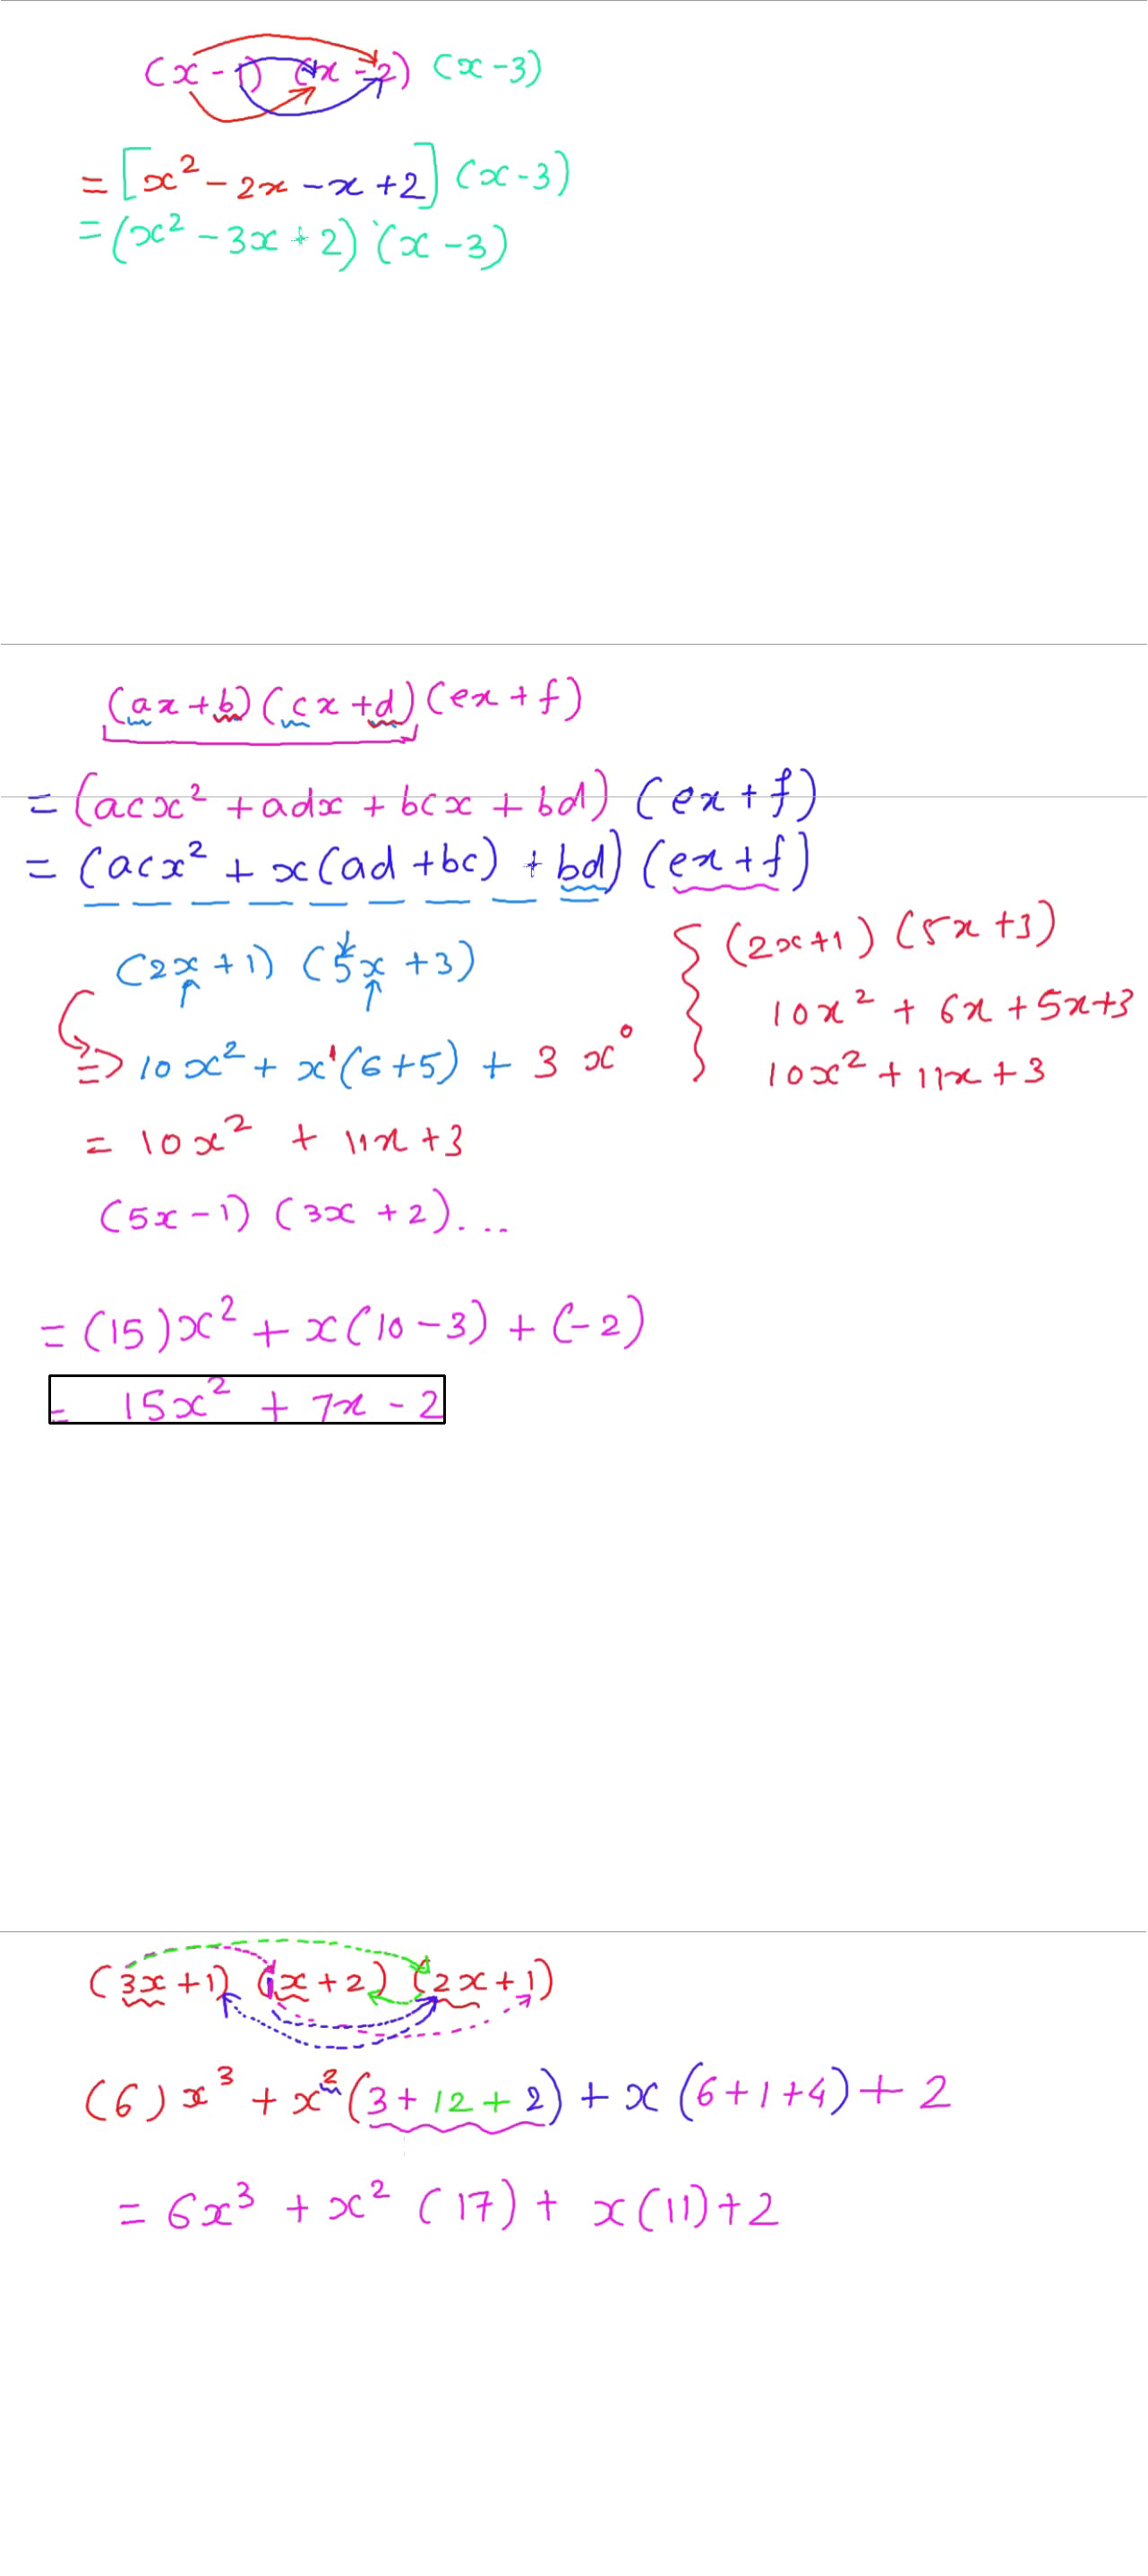 (x - 1) (x - 2) (x - 3)
= [x² - 2x - x + 2] (x - 3)
= (x² - 3x + 2) (x - 3)
(ax + b) (cx + d) (ex + f)
= (acx² + adx + bcx + bd) (ex + f)
= (acx² + x(ad + bc) + bd) (ex + f)
(2x + 1) (5x + 3)
=> 10x² + x¹(6 + 5) + 3 x⁰
= 10x² + 11x + 3
{ (2x + 1) (5x + 3)
10x² + 6x + 5x + 3
10x² + 11x + 3
(5x - 1) (3x + 2) ...
= (15)x² + x(10 - 3) + (-2)
= 15x² + 7x - 2
(3x + 1) (x + 2) (2x + 1)
(6)x³ + x²(3 + 12 + 2) + x(6 + 1 + 4) + 2
= 6x³ + x²(17) + x(11) + 2